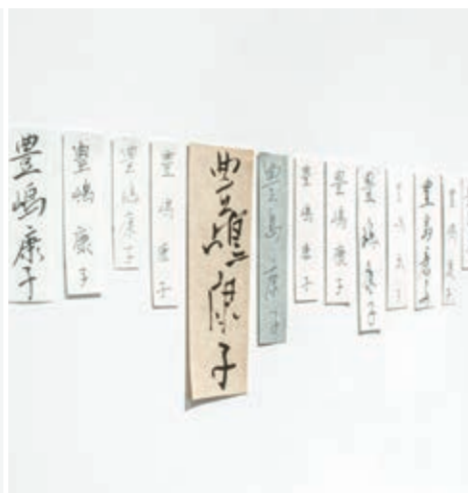 豊嶋康子
豊嶋康子
豊嶋康子
豊嶋康子
豊嶋康子
豊島康子
豊嶋康子
豊嶋康子
豊嶋康子
豊嶋康子
豊島康子
豊嶋康子